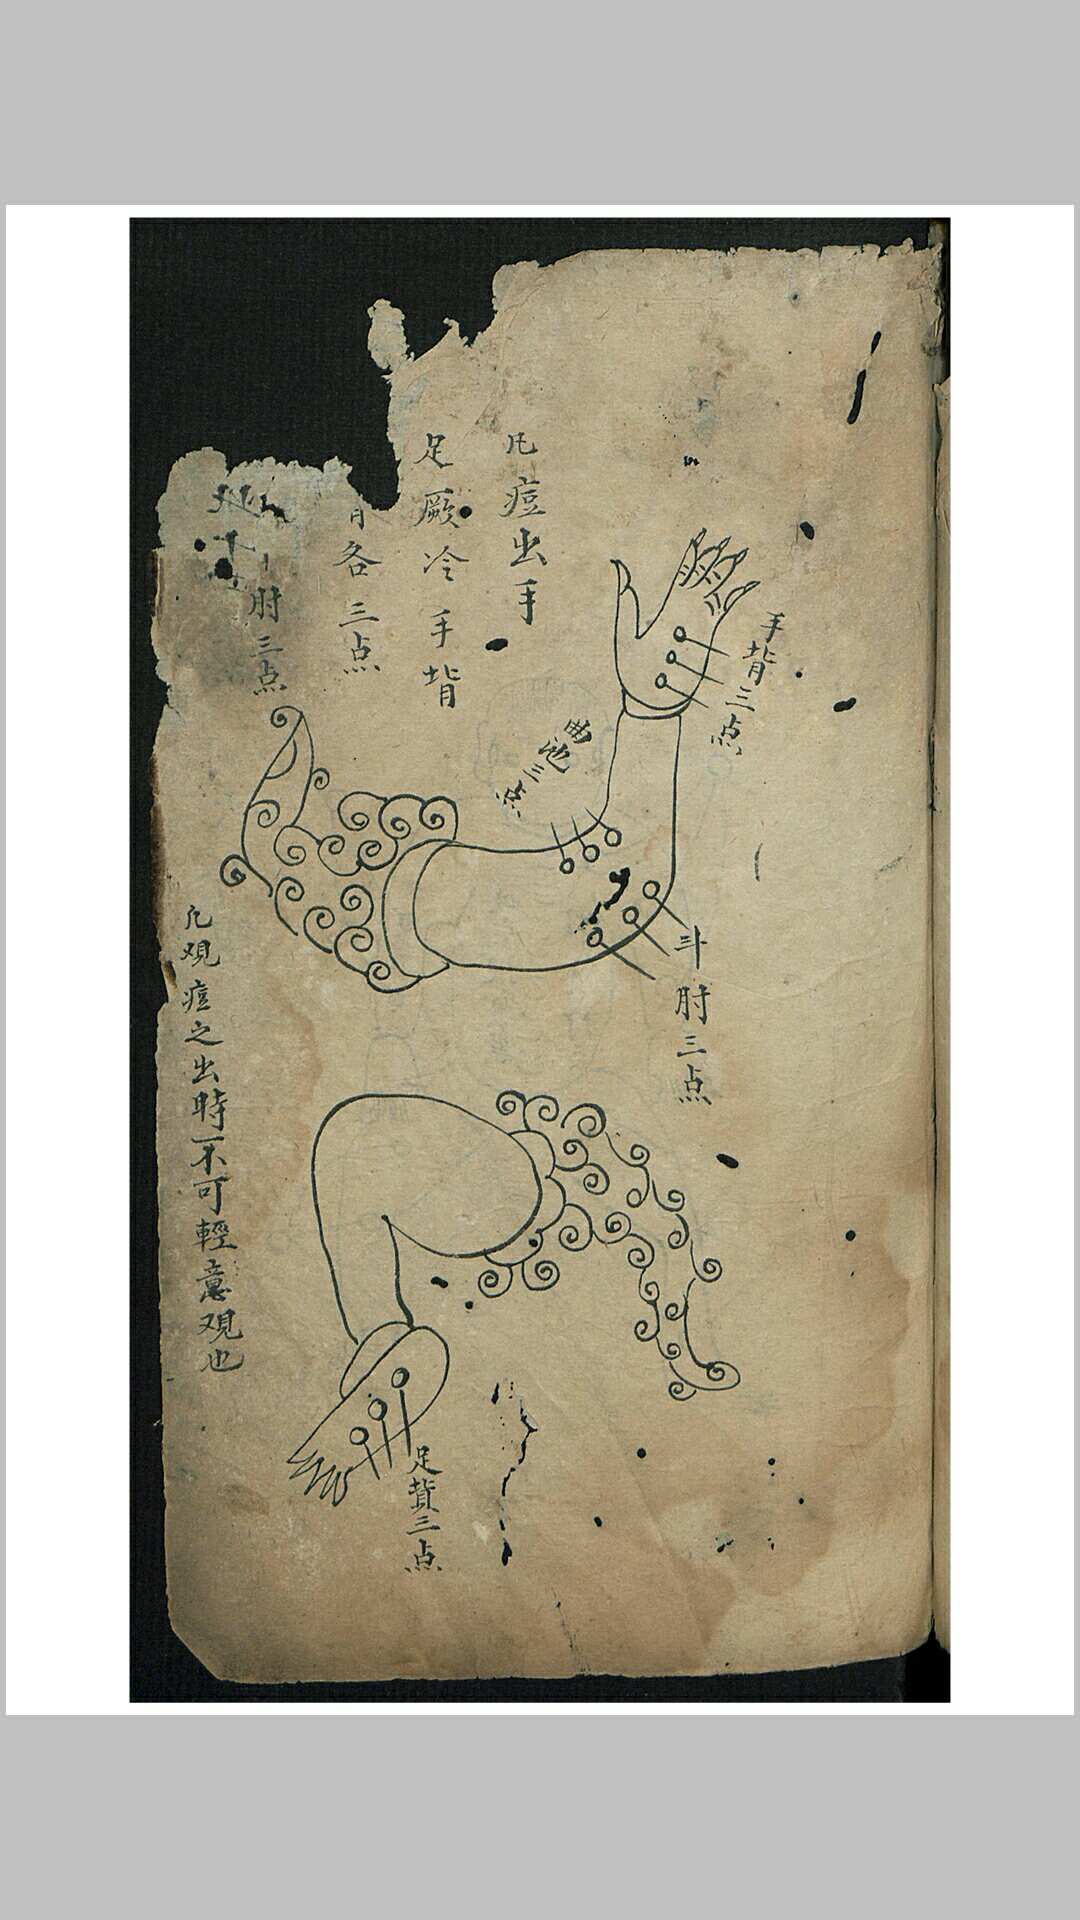 凡痘出手
足厥冷手背
各三点
肘三点
手背三点
曲池三点
斗肘三点
凡观痘之出時不可輕意观也
足背三点